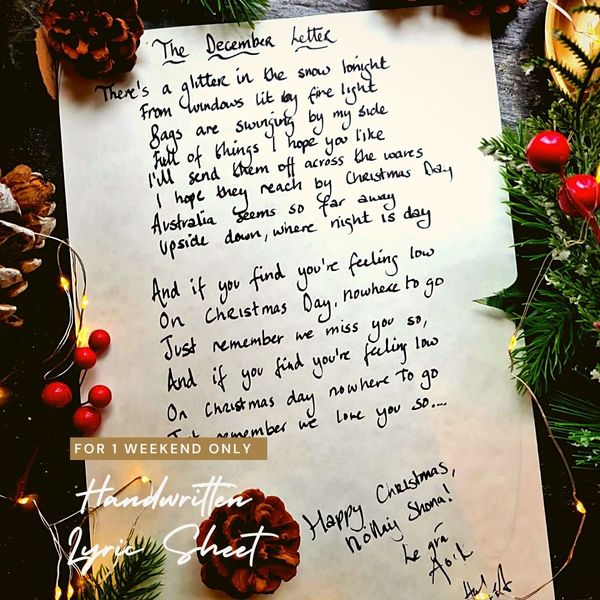 The December Letter
There's a glitter in the snow tonight
From windows lit by fire light
Bags are swinging by my side
Full of things I hope you like
I'll send them off across the waves
I hope they reach by Christmas Day
Australia seems so far away
Upside down, where night is day
And if you find you're feeling low
On Christmas Day, nowhere to go
Just remember we miss you so,
And if you find you're feeling low
On Christmas day nowhere to go
remember we love you so...
FOR 1 WEEKEND ONLY
Handwritten
Lyric Sheet
Happy Christmas,
Nollaig Shona!
Le grá